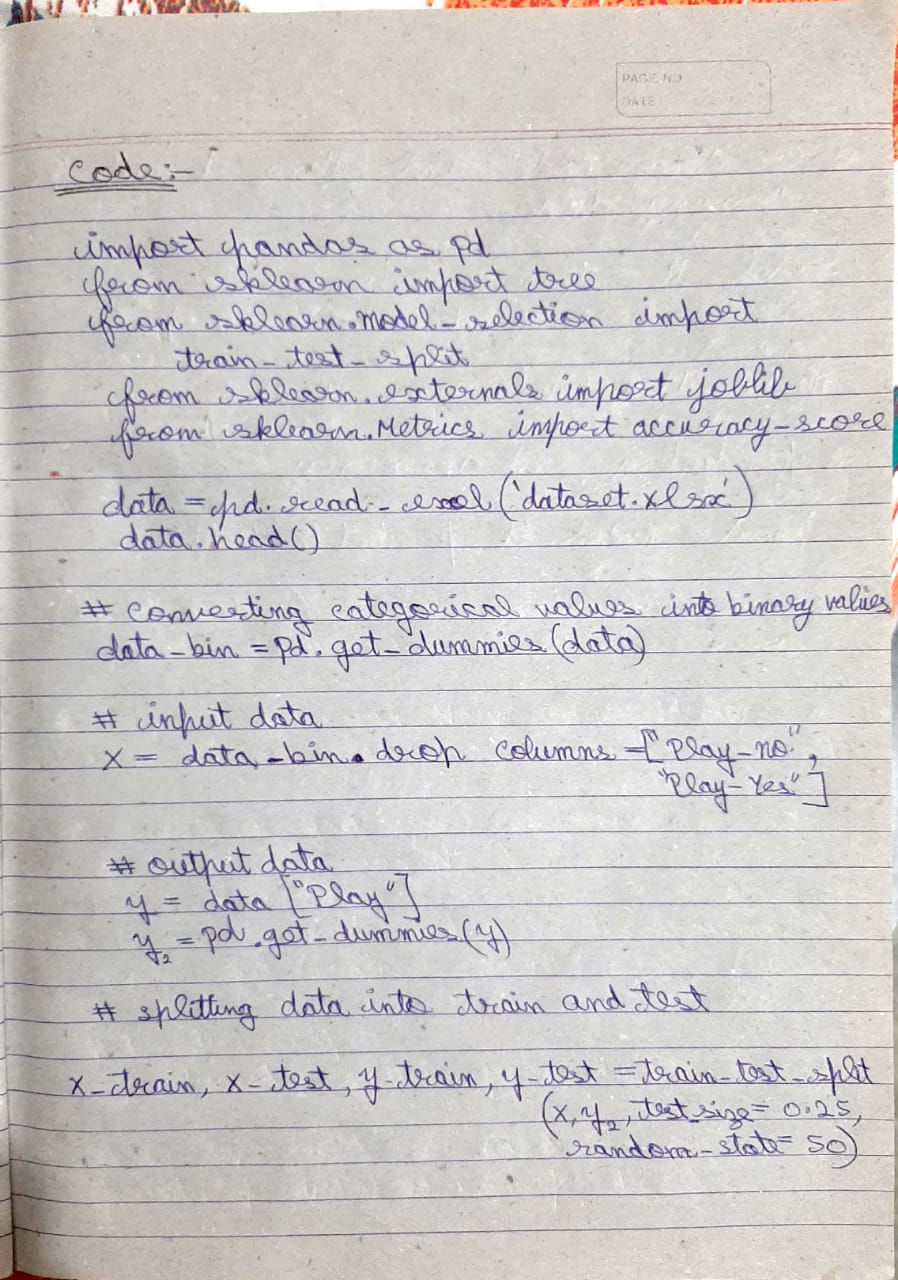 PAGE NO
DATE
Code:-
import pandas as pd
from sklearn import tree
from sklearn.Model-selection import
train-test-split
from sklearn.externals import joblib
from sklearn.Metrics import accuracy-score
data = pd.read-excel('dataset.xlsx')
data.head()
# Converting categorical values into binary values
data-bin = pd.get-dummies(data)
# input data
X = data-bin.drop columns = ["Play-no",
"Play-Yes"]
# output data
y = data ["Play"]
y₂ = pd.get-dummies(y)
# splitting data into train and test
X-train, X-test, y-train, y-test = train-test-split
(X, y₂, test-size = 0.25,
random-state = 50)